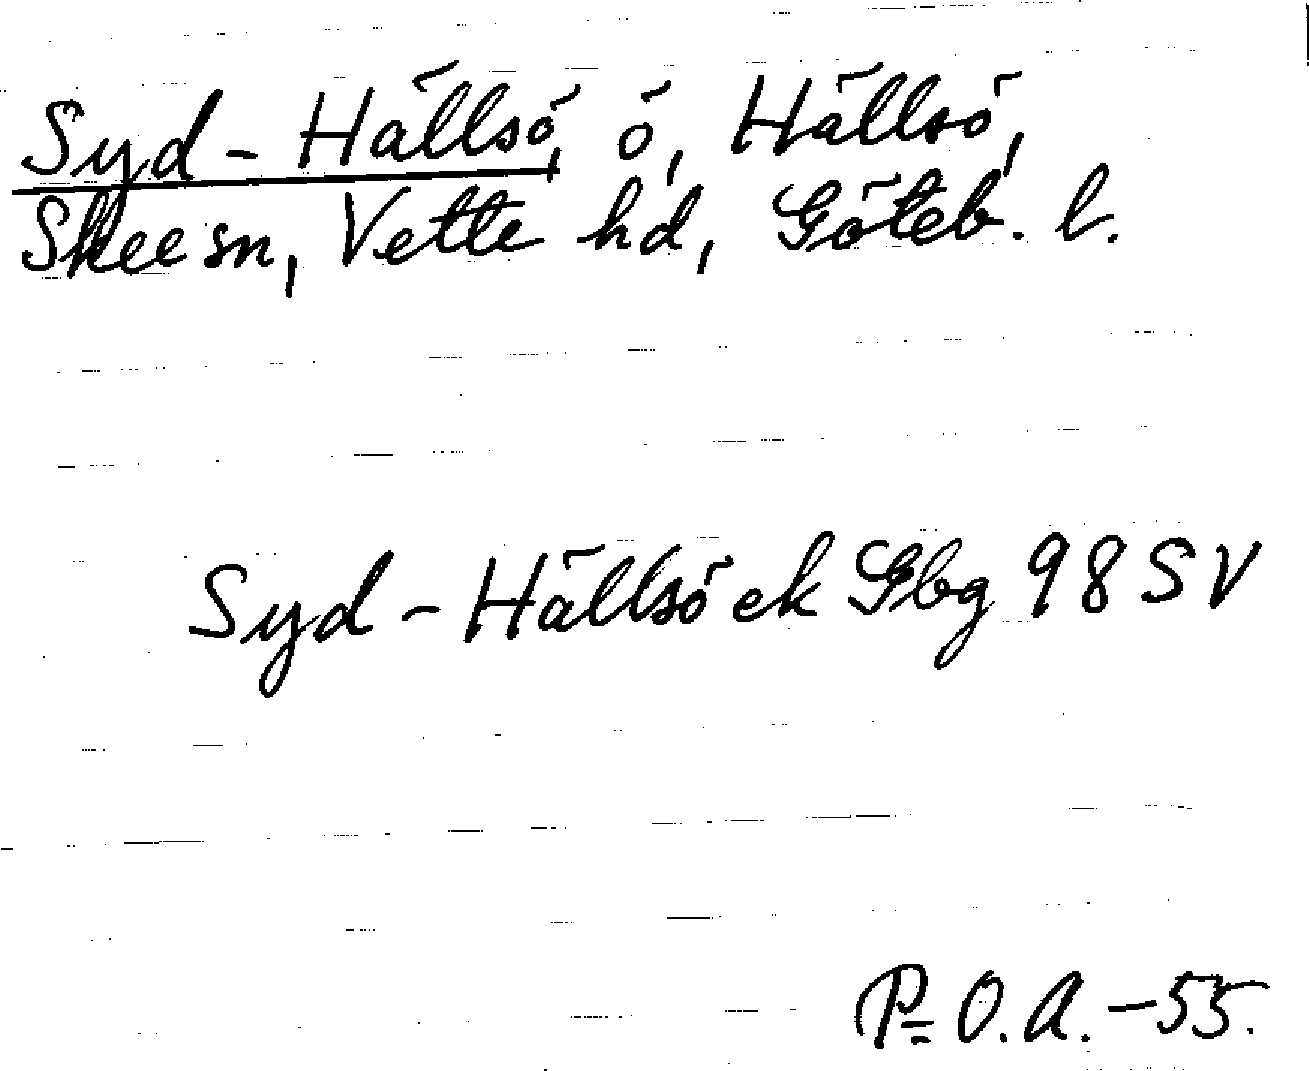 Syd-Hällsö, ö, Hällsö,
Skee sn, Vette hd, Göteb. l.
Syd-Hällsö ek Gbg 98 SV
P=O.A.-55.